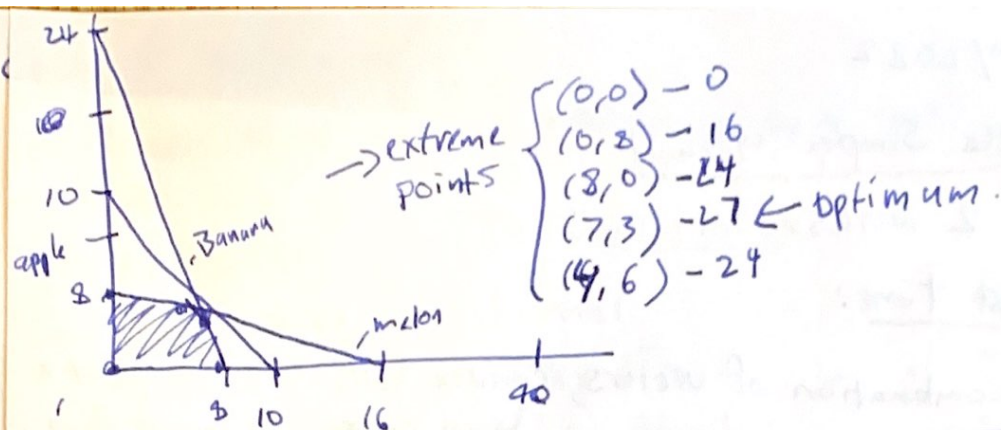 24
10
apple
8
Banana
melon
8 10 16 40
→ extreme points
(0,0) - 0
(0,8) - 16
(8,0) - 24
(7,3) - 27 ← optimum.
(4,6) - 24